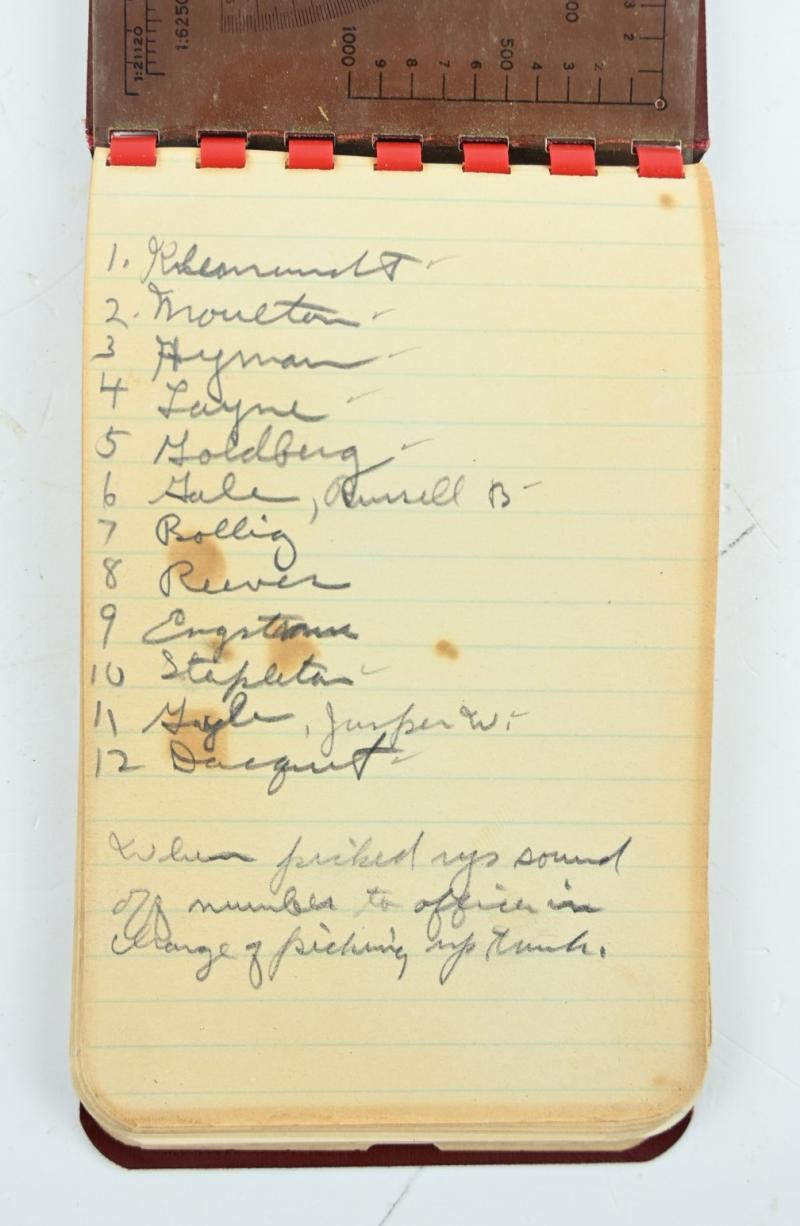 1:21120
1:6250
1000 9 8 7 6 500 4 3 2
00
3 2
1.
2. Moulton -
3 Hyman -
4 Layne -
5 Goldberg -
6 Gale, Russell B -
7 Bollig
8 Reever
9 Engstrom
10 Stapleton -
11 Gyle, Jasper W. -
12 Dacquet -
When picked up sound
off number to officer in
charge of picking up trunk.